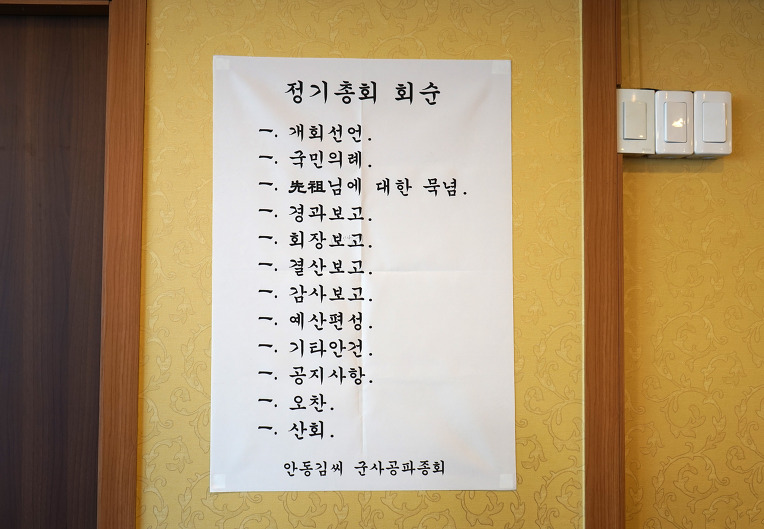 정기총회 회순
一. 개회선언.
一. 국민의례.
一. 先祖님에 대한 묵념.
一. 경과보고.
一. 회장보고.
一. 결산보고.
一. 감사보고.
一. 예산편성.
一. 기타안건.
一. 공지사항.
一. 오찬.
一. 산회.
안동김씨 군사공파종회